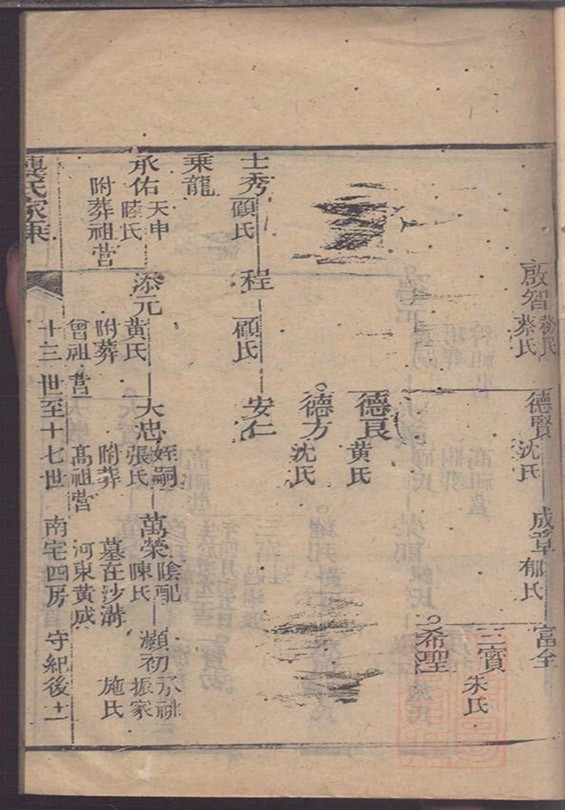 啟智
蔡氏
德賢
沈氏
成章
郁氏
富全
三寶
朱氏
希聖
德良
黃氏
德方
沈氏
士秀
顧氏
程
顧氏
安仁
乗龍
承佑
天申
陸氏
附葬祖塋
添元
黃氏
附葬
曾祖塋
大忠
姪嗣
張氏
附葬
高祖塋
萬榮
陰配
陳氏
墓在沙溝
河東黃成
灝初
承祧
振家
施氏
龔氏家乗
十三世至十七世
南宅四房
守紀後十一